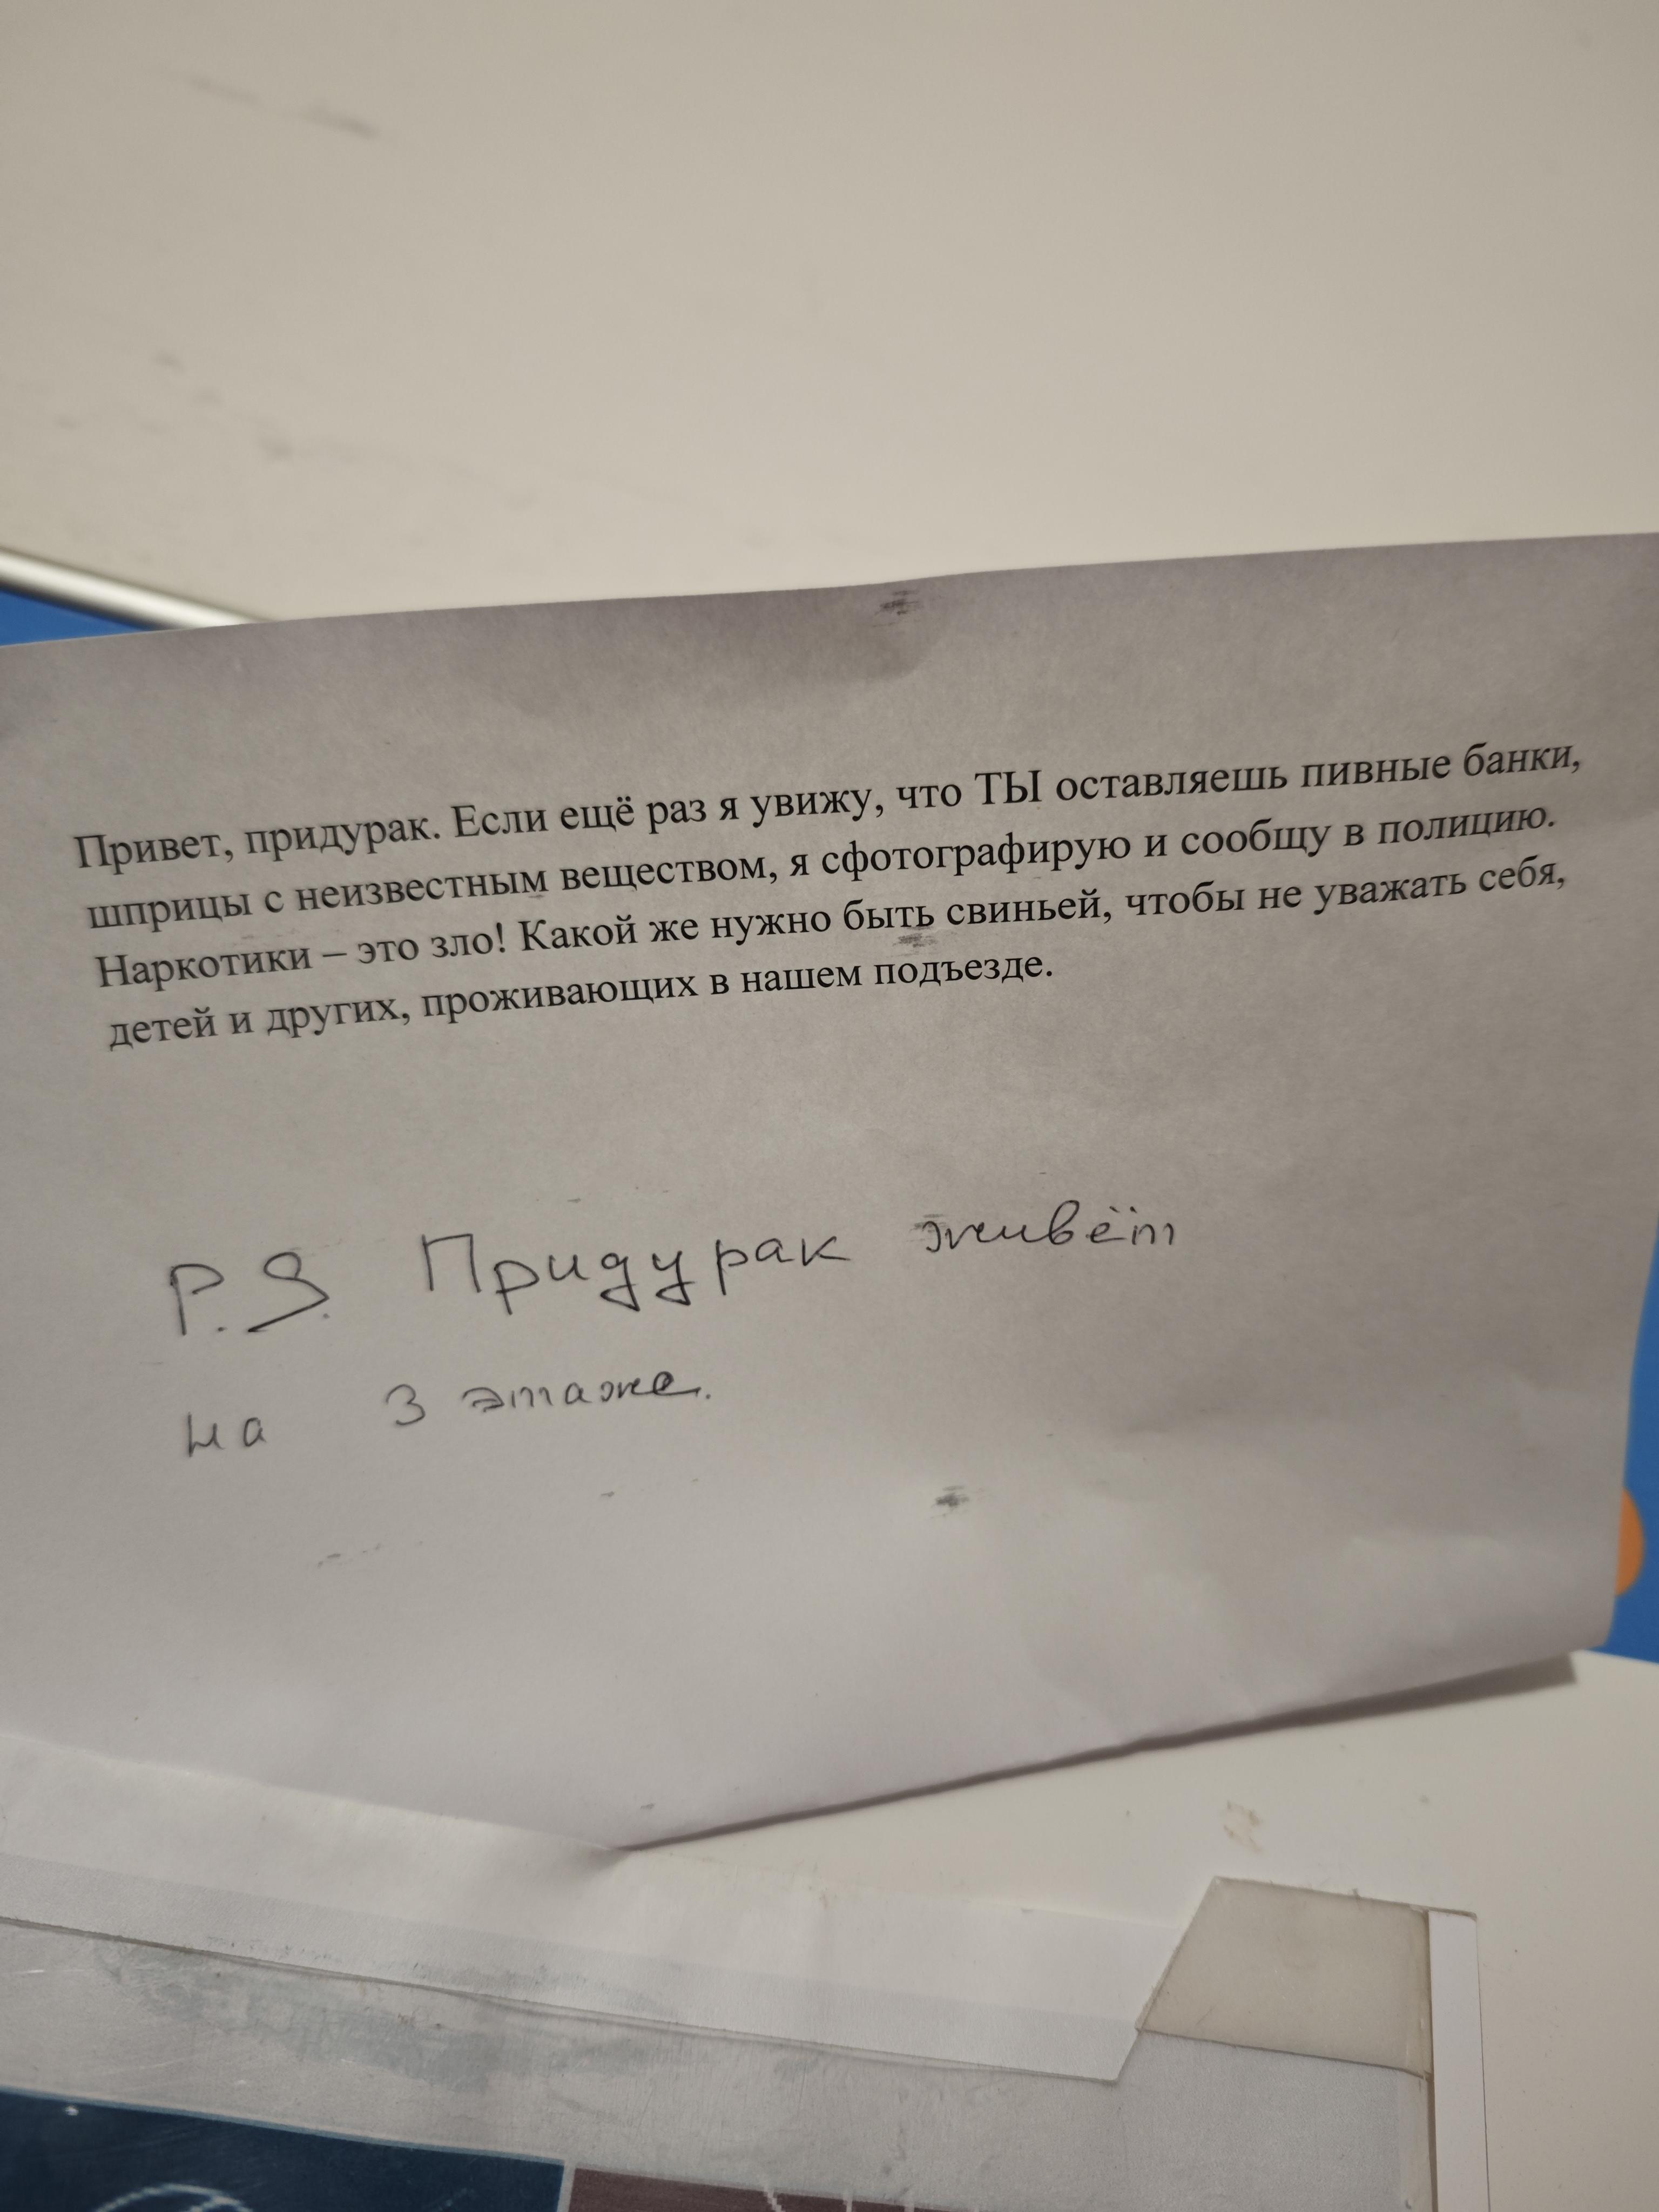 Привет, придурак. Если ещё раз я увижу, что ТЫ оставляешь пивные банки,
шприцы с неизвестным веществом, я сфотографирую и сообщу в полицию.
Наркотики – это зло! Какой же нужно быть свиньей, чтобы не уважать себя,
детей и других, проживающих в нашем подъезде.
P.S. Придурак живёт
на 3 этаже.